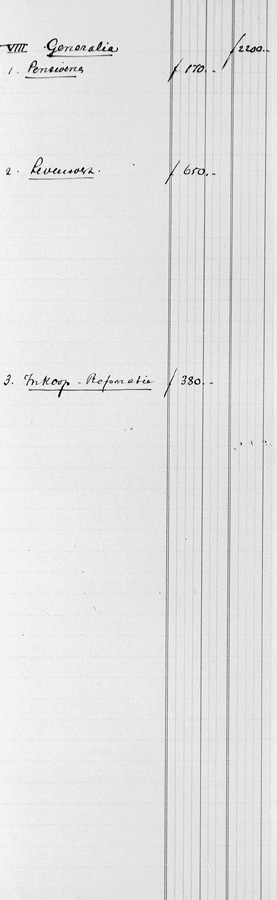 VIII. Generalia f 2200.-
1. Pensioens f 170.-
2. f 650.-
3. Inkoop - Reparatie f 380.-